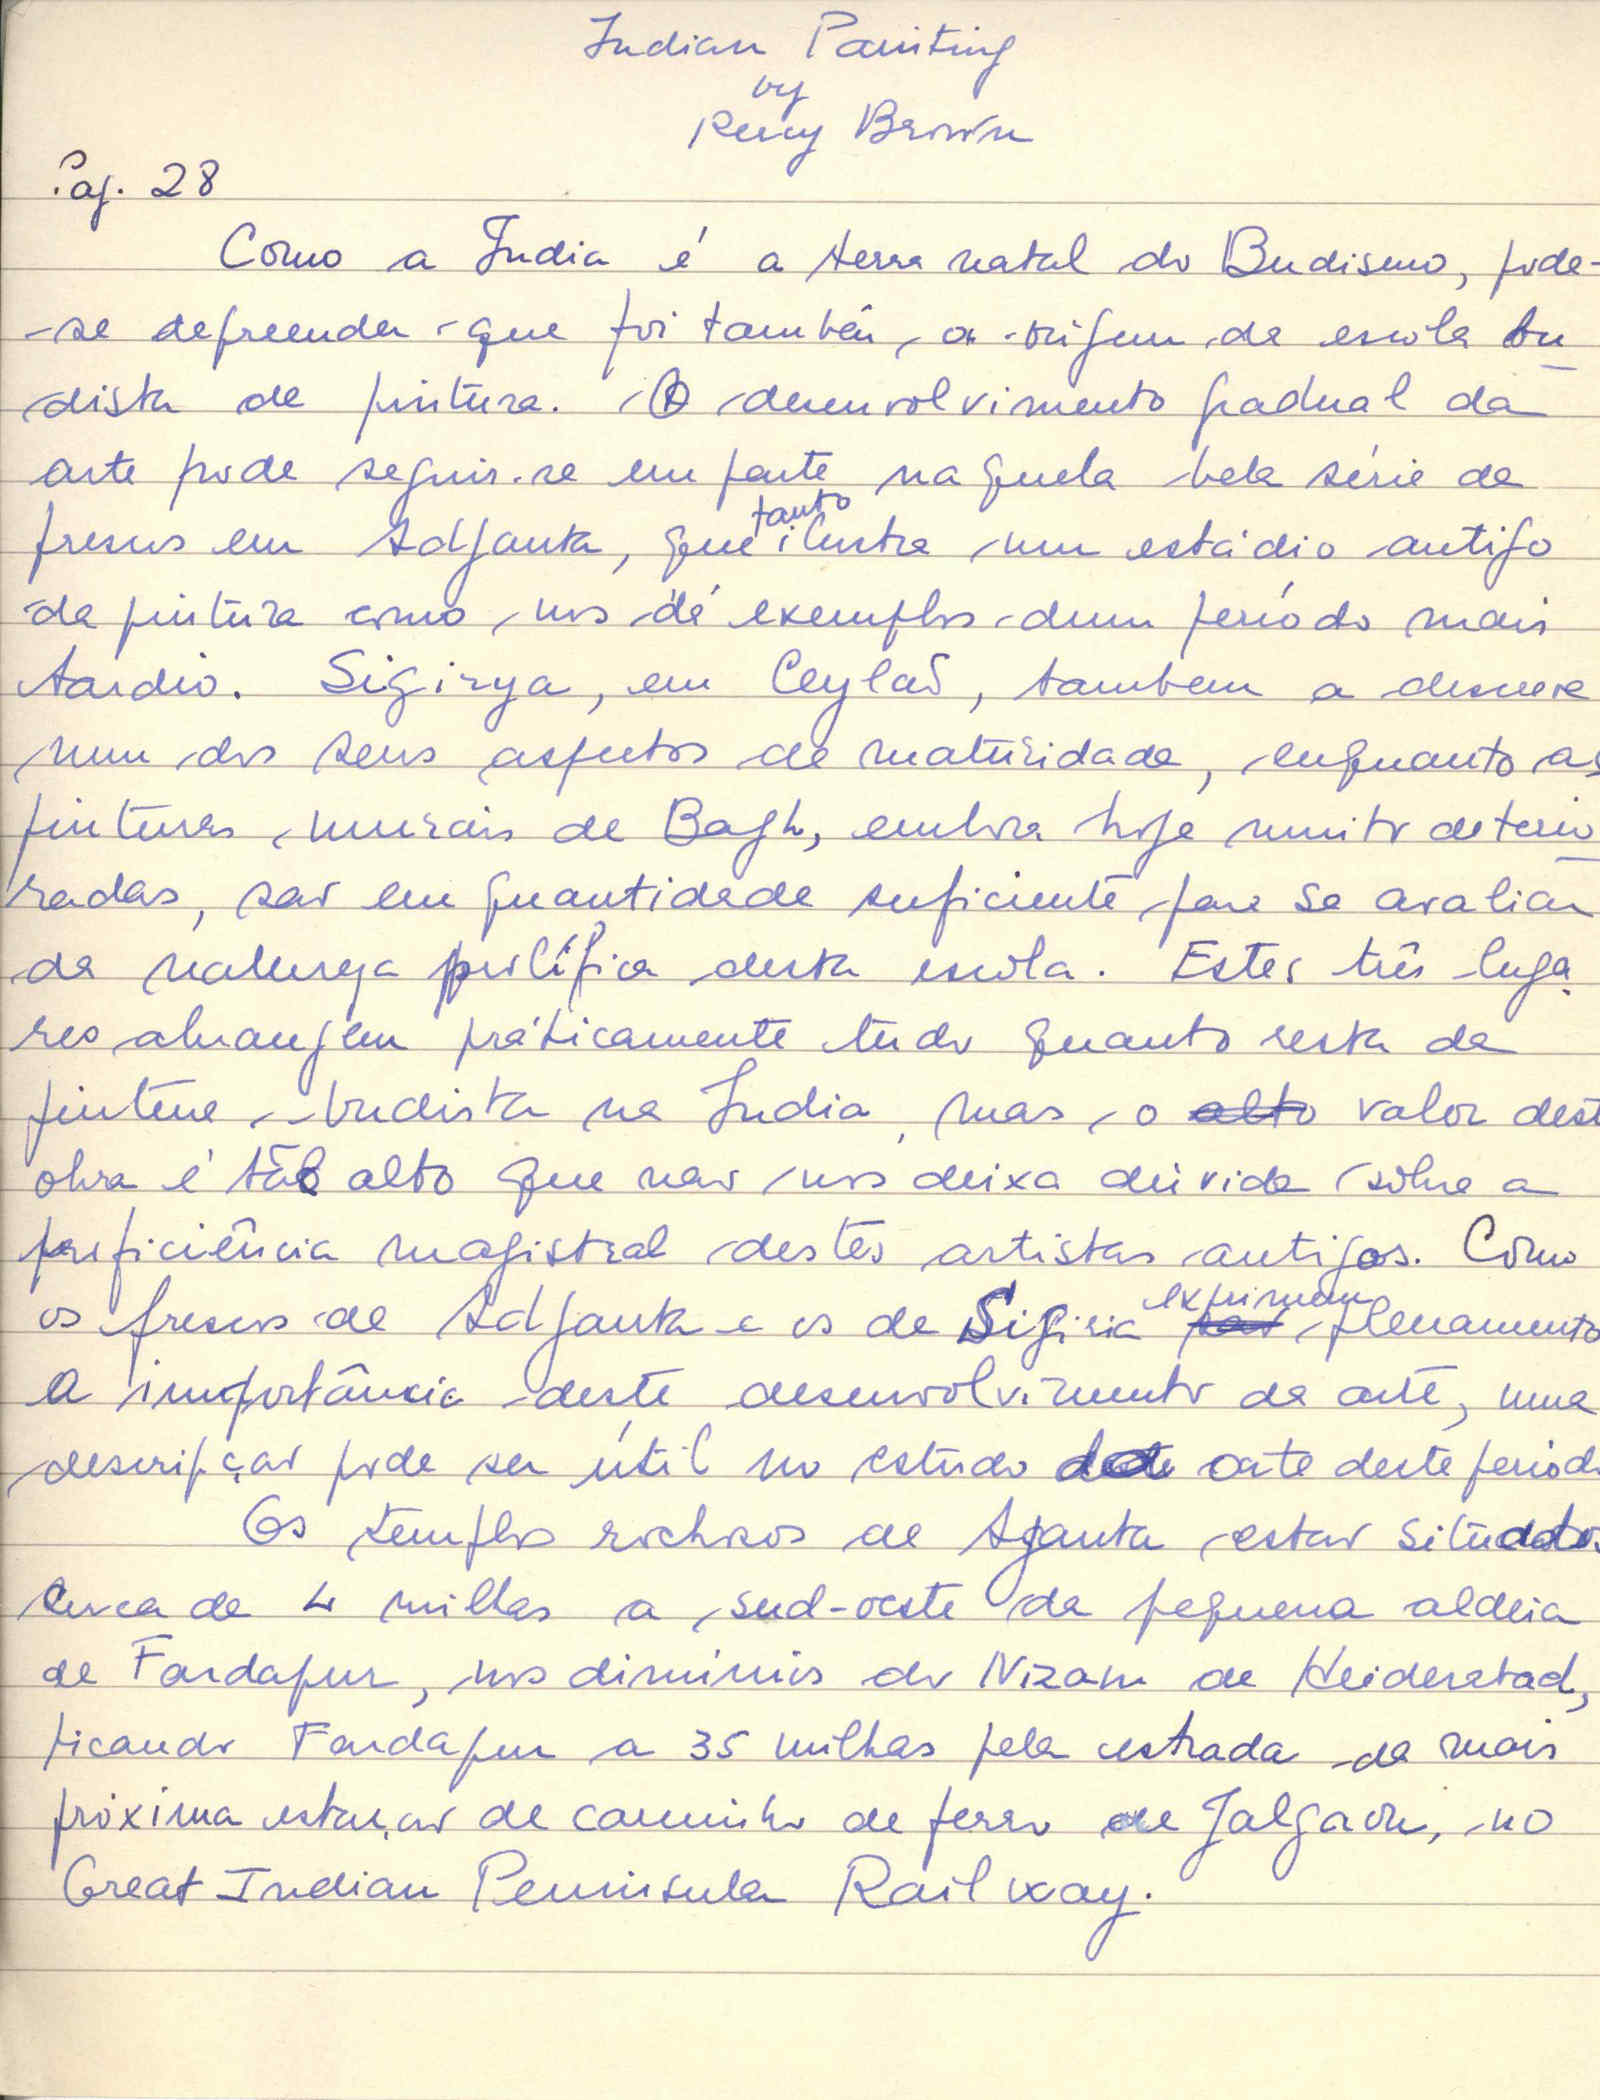 Indian Painting
by
Percy Brown
Pag. 28
Como a India é a terra natal do Budismo, pode-
-se depreender que foi também a origem da escola bu
dista de pintura. O desenvolvimento gradual da
arte pode seguir-se em parte naquela bela série de
frescos em Adjanta, que tanto ilustra um estádio antigo
da pintura como nos dá exemplos dum período mais
tardio. Sigirya, em Ceylaõ, tambem a descreve
num dos seus aspectos de maturidade, enquanto as
pinturas murais de Bagh, embora hoje muito deterio
radas, sao em quantidade suficiente para se avaliar
da natureza prolífica desta escola. Estes três luga
res abrangem práticamente tudo quanto resta da
pintura budista na India, mas o alto valor dest
obra é tão alto que nao nos deixa dúvida sôbre a
proficiência magistral destes artistas antigos. Como
os frescos de Adjanta e os de Sigiria exprimem plenamente
a importância deste desenvolvimento da arte, uma
descripçao pode ser útil no estudo da arte deste períod
Os templos rochosos de Ajanta estao situados
cerca de 4 milhas a sud-oeste da pequena aldeia
de Fardapur, nos dominios do Nizam de Heiderabad,
ficando Fardapur a 35 milhas pela estrada da mais
próxima estaçao de caminho de ferro de Jalgaon, no
Great Indian Peninsula Railway.